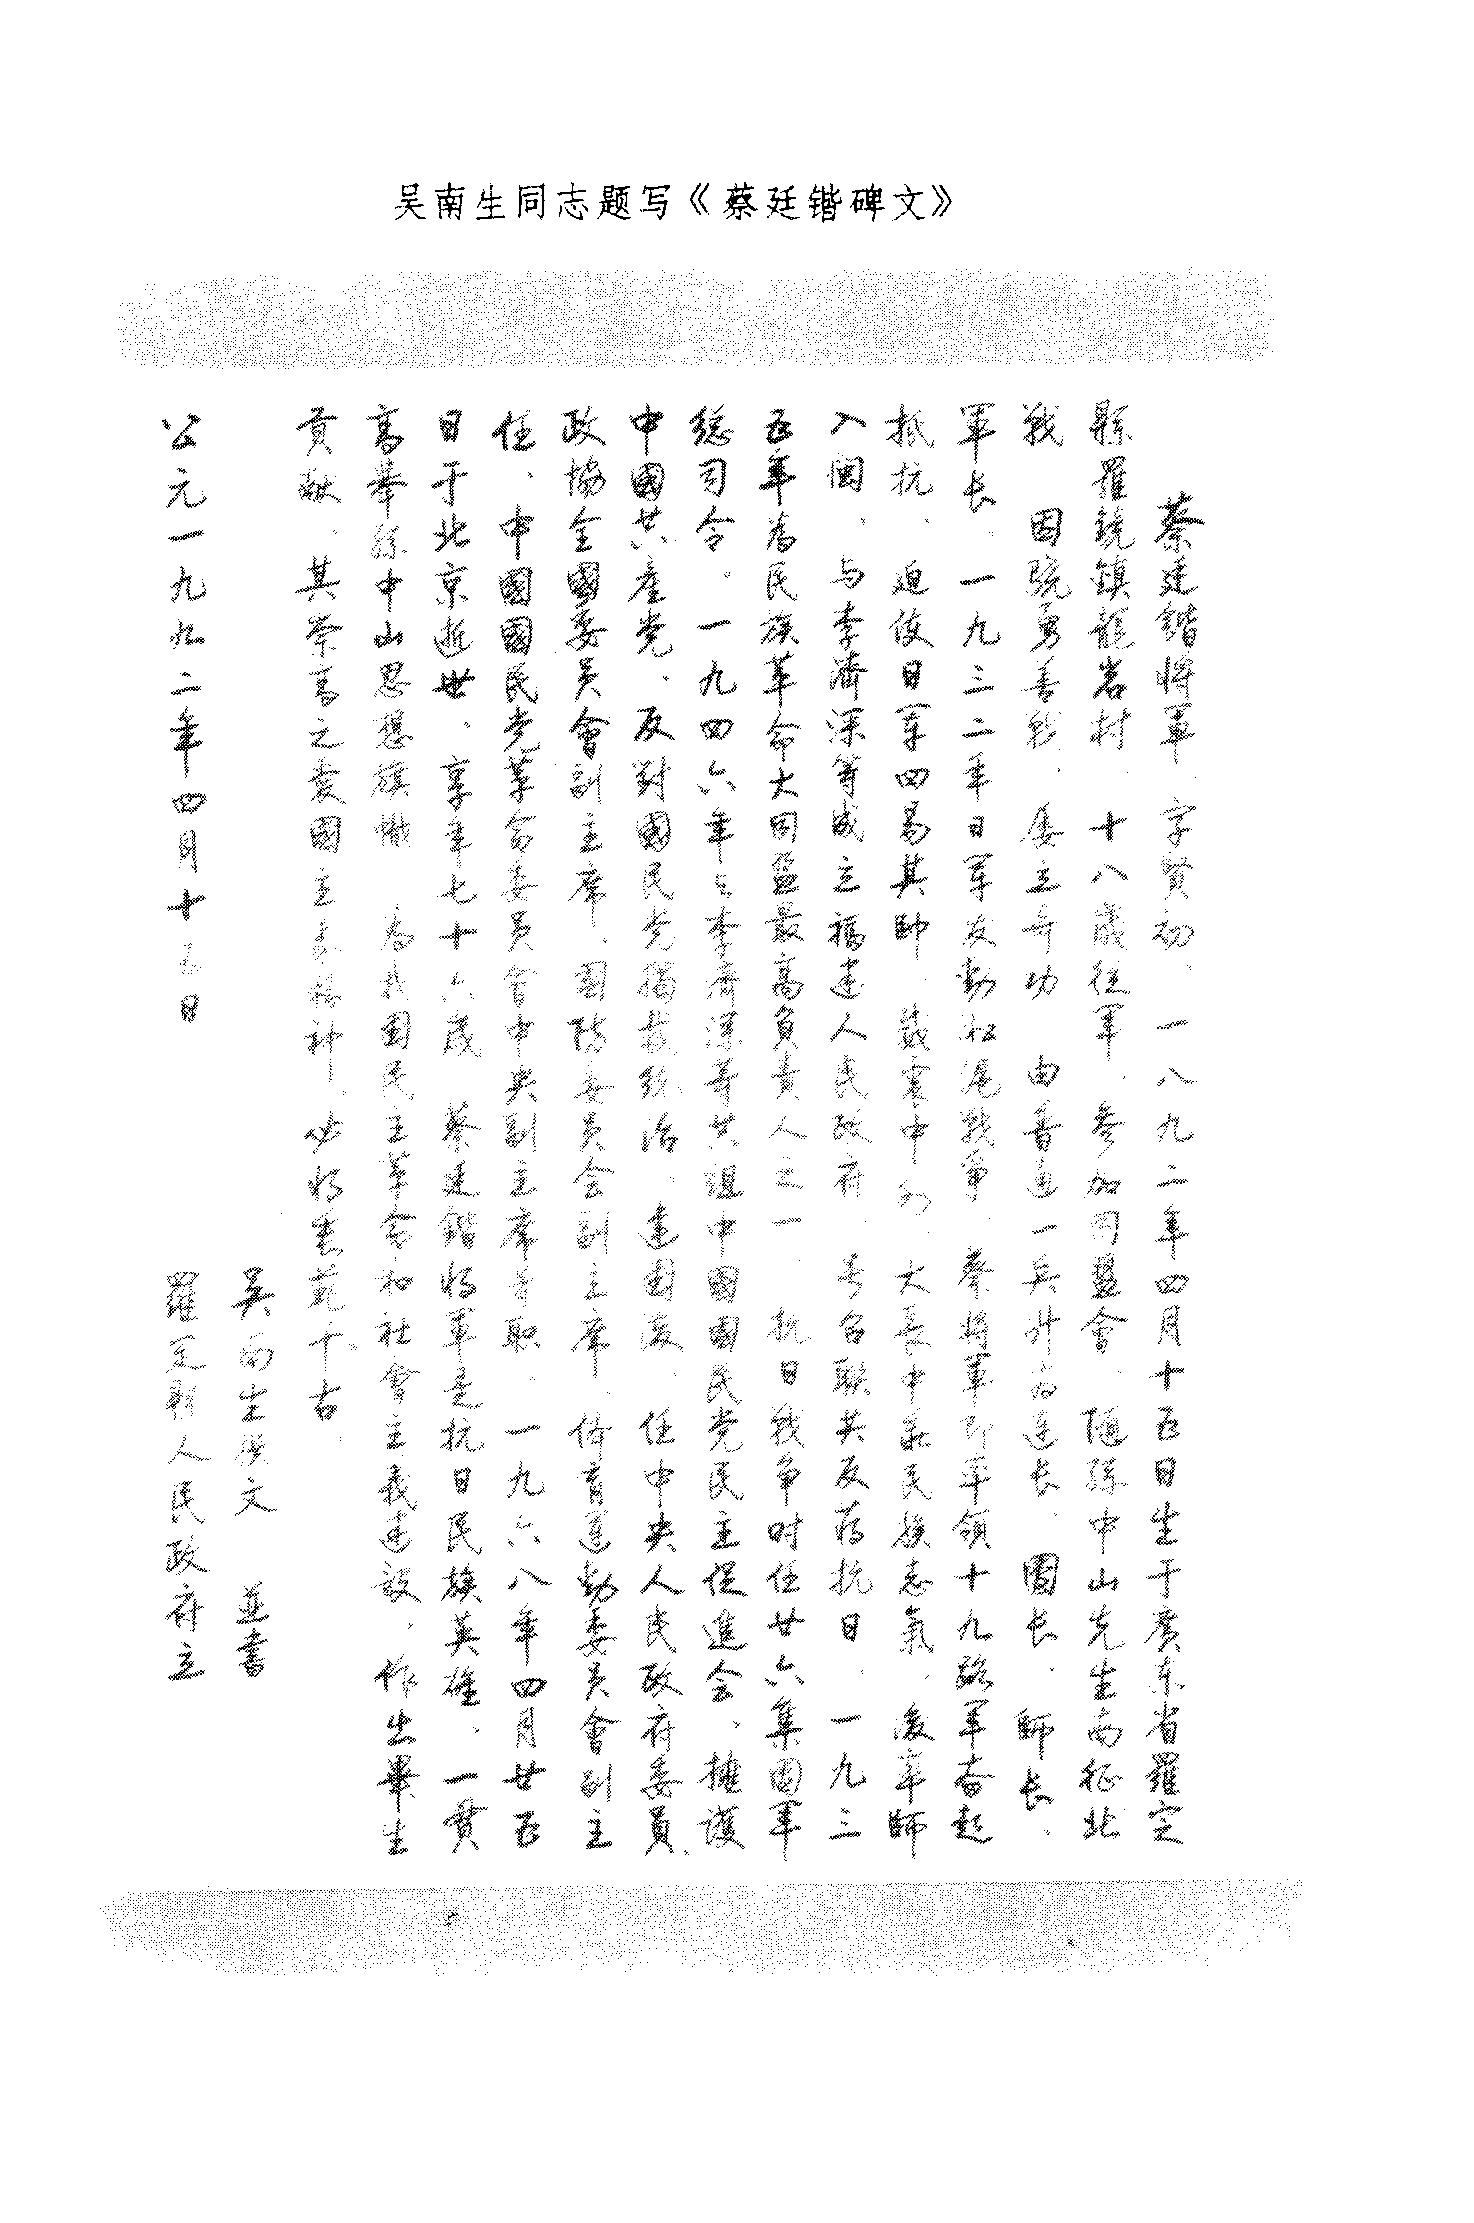 吴南生同志题写《蔡廷锴碑文》
蔡廷鍇将軍、字賢初、一八九二年四月十五日生于廣东省羅定
縣羅鏡鎮龍岩村、十八歲従軍、參加同盟會、随孫中山先生南征北
戰、因驍勇善战、屡立奇功、由普通一兵升为连长、團长、師长、
軍长、一九三二年日軍发動淞滬戰爭、蔡將軍即率领十九路軍奋起
抵抗、迫使日軍四易其帥、嚴震中外、大長中華民族志氣、後率師
入闽、与李濟深等成立福建人民政府、号召联共反蒋抗日、一九三
五年為民族革命大同盟最高負責人之一、抗日战争时任廿六集團軍
總司令。一九四六年与李濟深等共组中國國民党民主促進会、擁護
中國共産党、反對國民党獨裁統治、建國後、任中央人民政府委員、
政協全國委員會副主席、國防委員会副主席、体育運動委員會副主
任、中國國民党革命委員會中央副主席等职、一九六八年四月廿五
日于北京逝世、享年七十六歲、蔡廷鍇将軍是抗日民族英雄、一貫
高舉孫中山思想旗幟、為我國民主革命和社會主義建設、作出畢生
貢献、其崇高之爱國主義精神、必将垂范千古、
吴南生撰文 並書
公元一九九二年四月十五日 羅定縣人民政府立